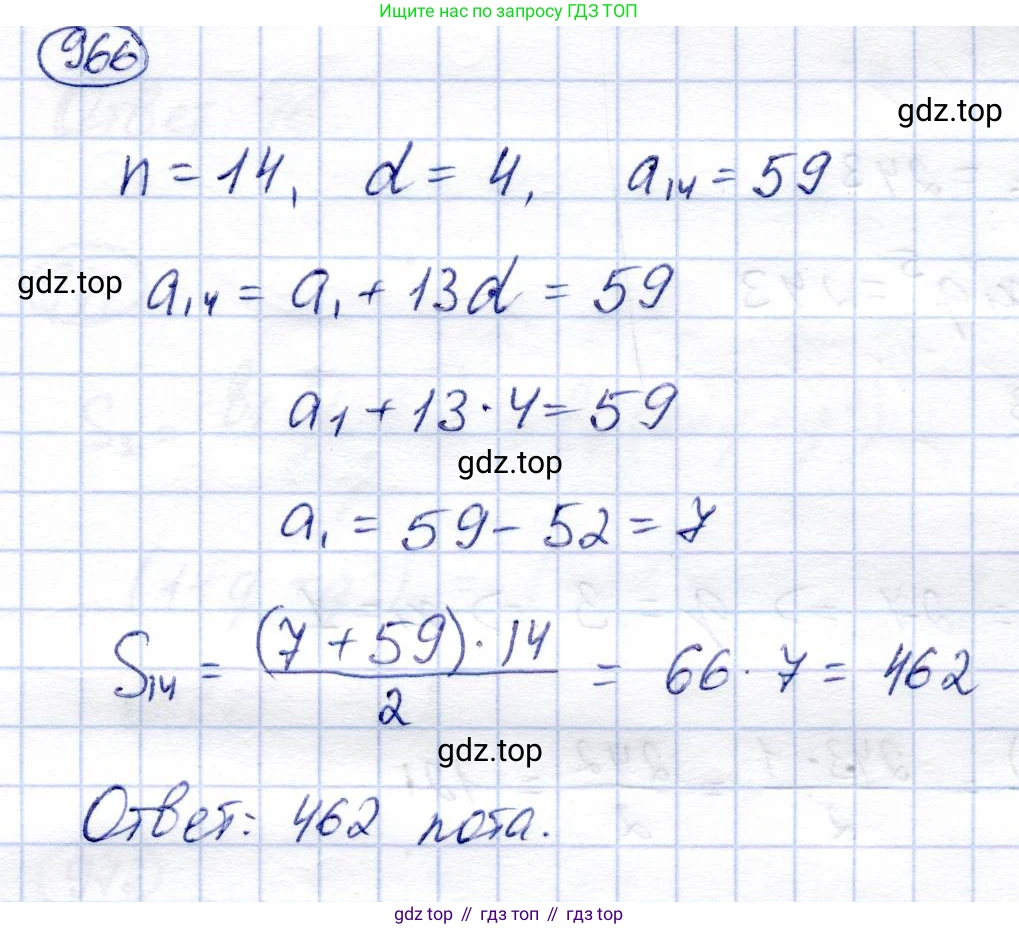 Ищите нас по запросу ГДЗ ТОП
966
gdz.top
n = 14, d = 4, a₁₄ = 59
gdz.top
a₁₄ = a₁ + 13d = 59
a₁ + 13 · 4 = 59
gdz.top
a₁ = 59 - 52 = 7
S₁₄ = (7 + 59) · 14 / 2 = 66 · 7 = 462
gdz.top
Ответ: 462 нота.
gdz top // гдз топ // gdz top